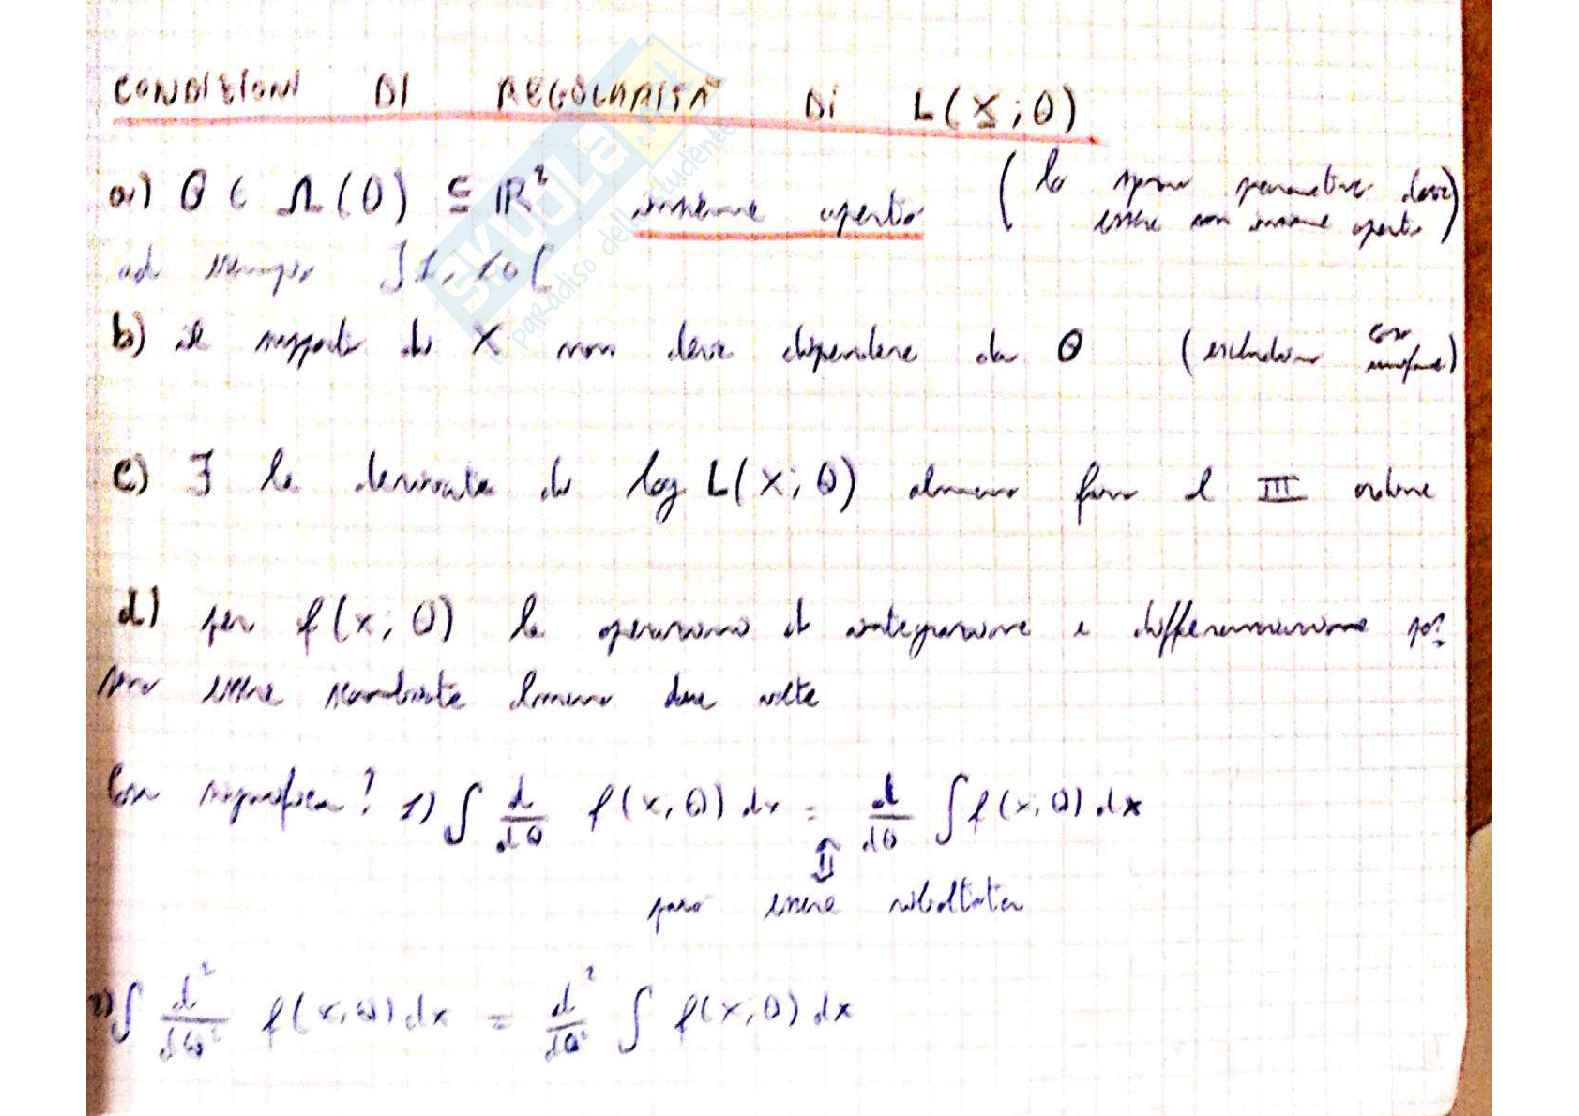 CONDIZIONI DI REGOLARITÀ DI L(X; θ)
a) θ ∈ Ω(θ) ⊆ ℝ² insieme aperto (lo spazio parametrico deve essere un insieme aperto)
ad esempio ]1, 10[
b) il supporto di X non deve dipendere da θ (escludiamo caso uniforme)
c) ∃ le derivate di log L(X; θ) almeno fino al III ordine
d) per f(x; θ) le operazioni di integrazione e differenziazione pos
sono essere scambiate almeno due volte
Cosa significa? 1) ∫ d/dθ f(x, θ) dx = d/dθ ∫ f(x, θ) dx
⇕
può essere ribaltata
2) ∫ d²/dθ² f(x, θ) dx = d²/dθ² ∫ f(x, θ) dx
SKUOLA.net
paradiso dello studente